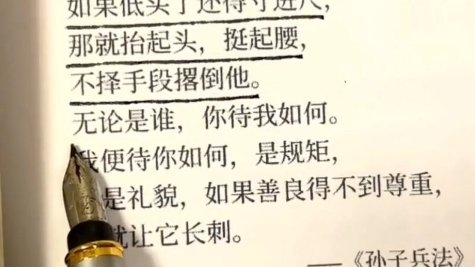 如果低头了还得寸进尺，
那就抬起头，挺起腰，
不择手段撂倒他。
无论是谁，你待我如何。
我便待你如何，是规矩，
是礼貌，如果善良得不到尊重，
就让它长刺。
——《孙子兵法》